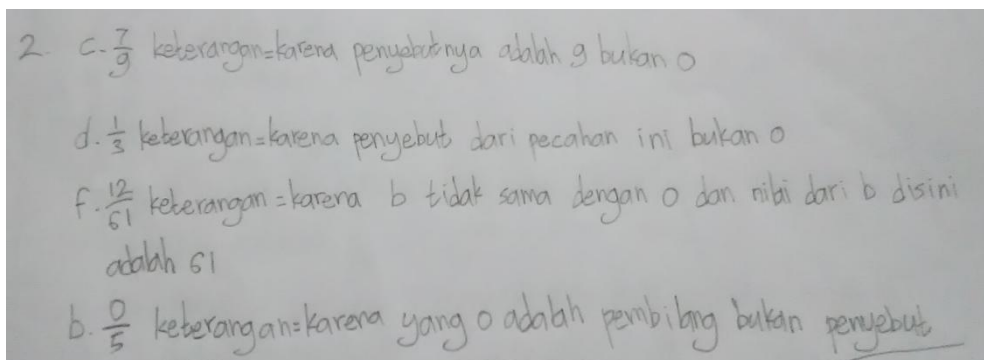 2. c. 7/9 keterangan=karena penyebutnya adalah 9 bukan 0
d. 1/3 keterangan=karena penyebut dari pecahan ini bukan 0
f. 12/61 keterangan=karena b tidak sama dengan 0 dan nilai dari b disini
adalah 61
b. 0/5 keterangan=karena yang 0 adalah pembilang bukan penyebut